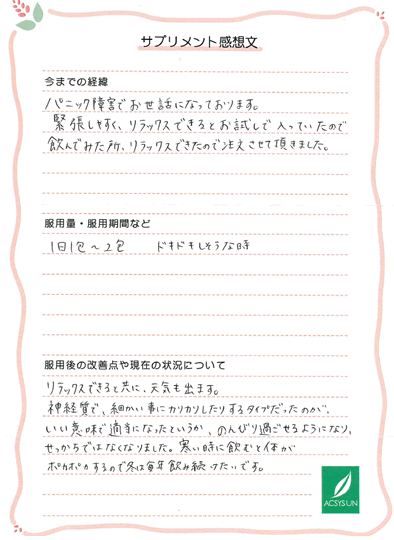 サプリメント感想文
今までの経緯
パニック障害でお世話になっております。
緊張しやすく、リラックスできるとお試しで入っていたので
飲んでみた所、リラックスできたので注文させて頂きました。
服用量・服用期間など
1日1包〜2包　ドキドキしそうな時
服用後の改善点や現在の状況について
リラックスできると共に、元気も出ます。
神経質で、細かい事にカリカリしたりするタイプだったのが、
いい意味で適当になったというか、のんびり過ごせるようになり、
せっかちではなくなりました。寒い時に飲むと体が
ポカポカするので冬は毎年飲み続けたいです。
ACSYSUN